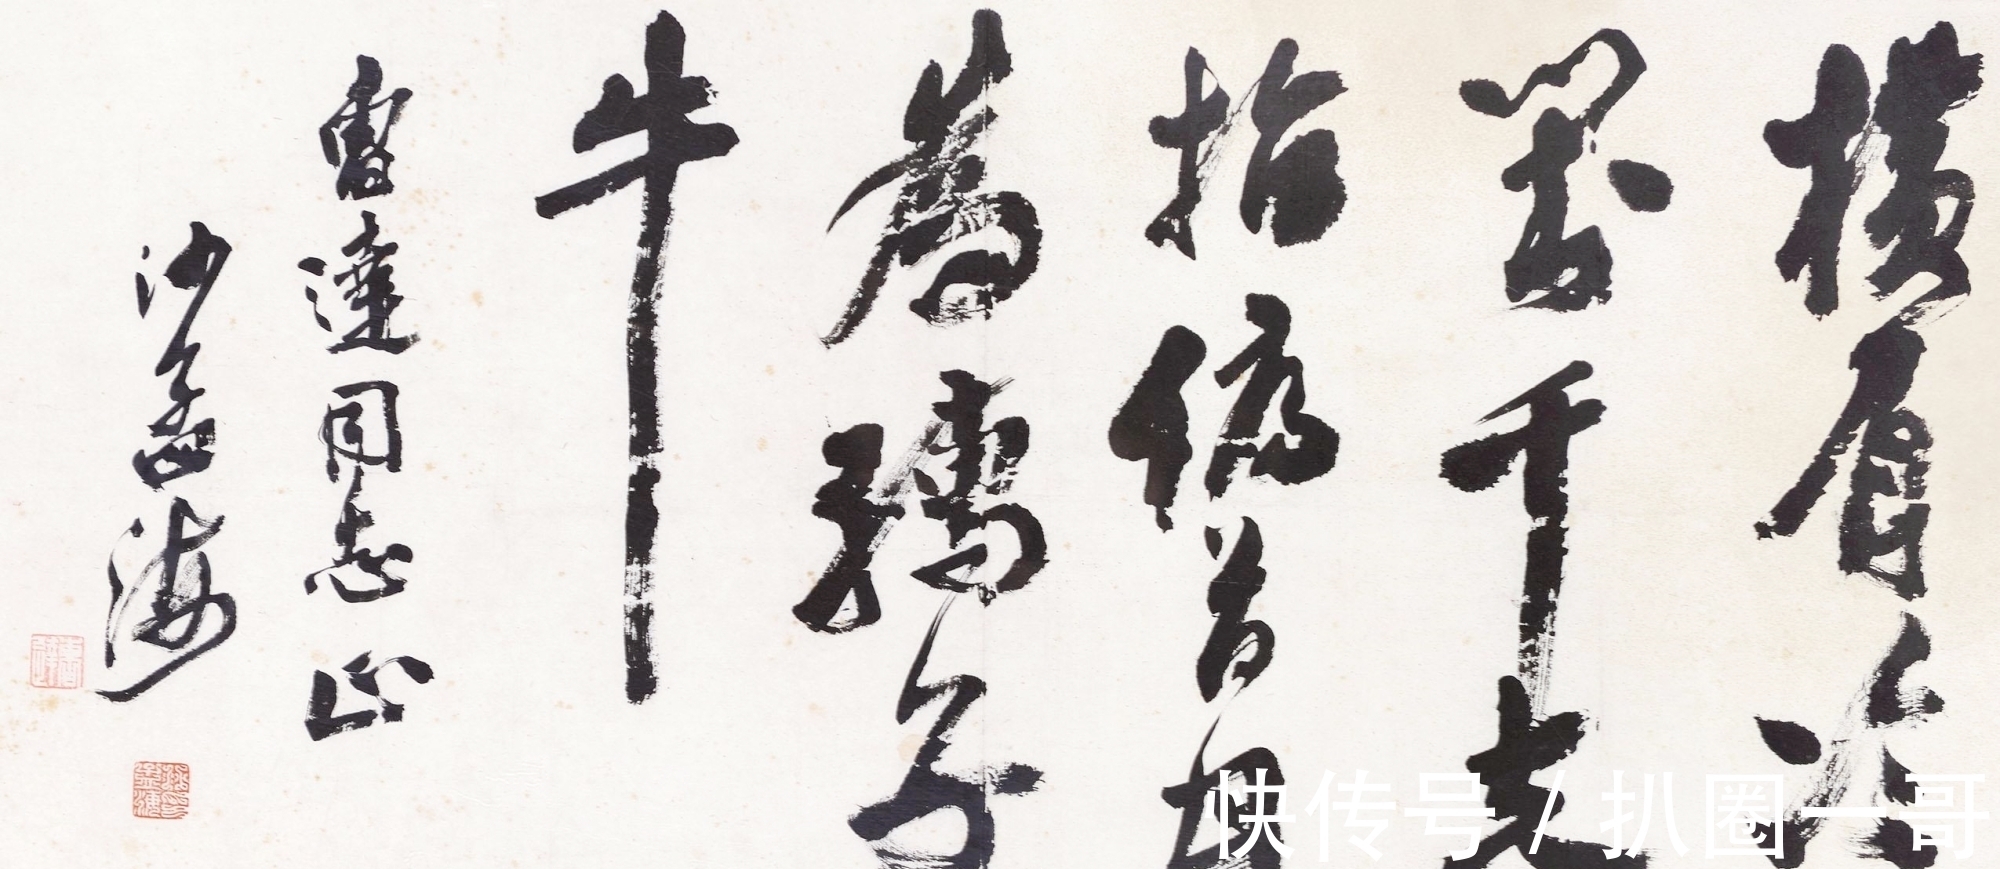 橫眉冷
對千夫
指俯首甘
為孺子
牛
雷達同志正
沙孟海
快传号 / 扒圈一哥